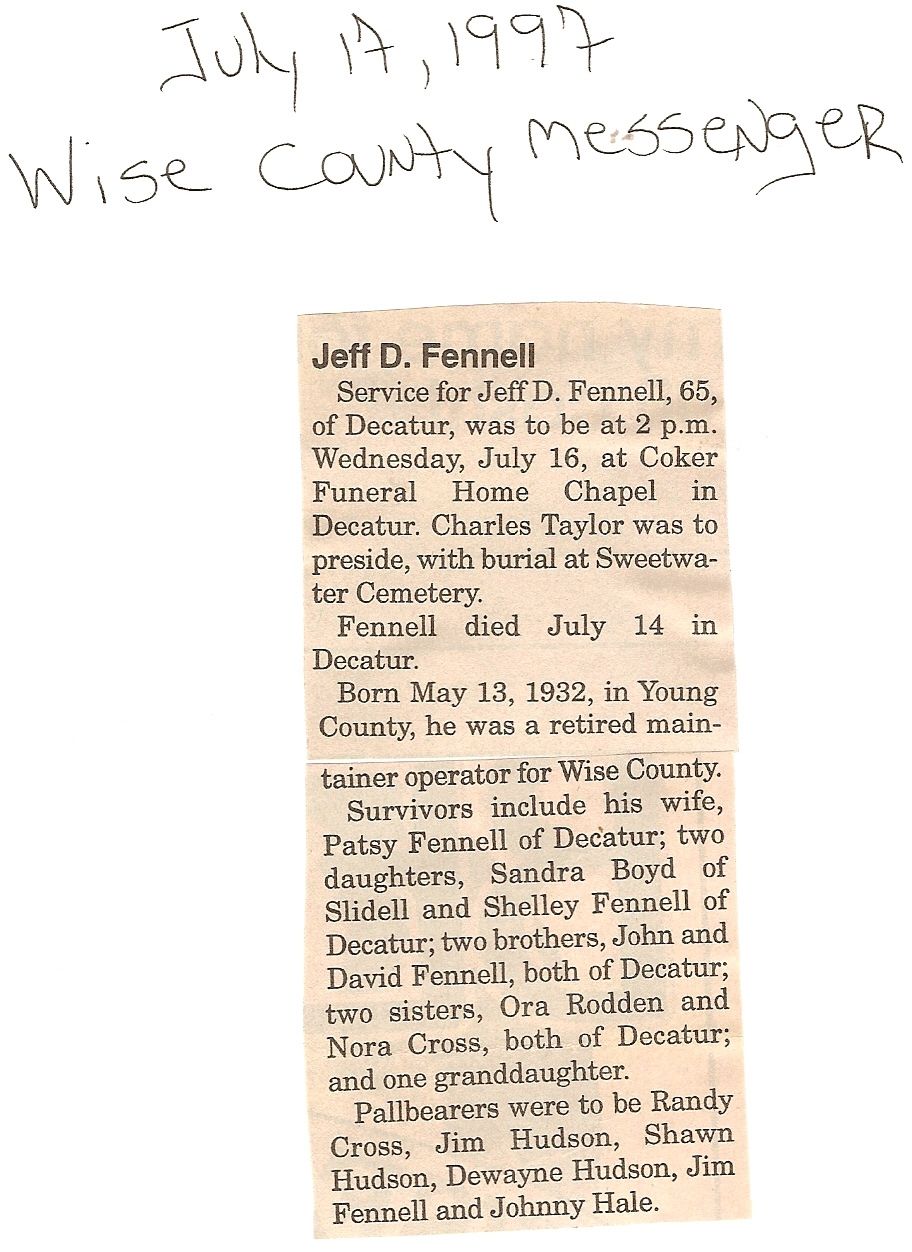 July 17, 1997
Wise County Messenger
Jeff D. Fennell
Service for Jeff D. Fennell, 65,
of Decatur, was to be at 2 p.m.
Wednesday, July 16, at Coker
Funeral Home Chapel in
Decatur. Charles Taylor was to
preside, with burial at Sweetwa-
ter Cemetery.
Fennell died July 14 in
Decatur.
Born May 13, 1932, in Young
County, he was a retired main-
tainer operator for Wise County.
Survivors include his wife,
Patsy Fennell of Decatur; two
daughters, Sandra Boyd of
Slidell and Shelley Fennell of
Decatur; two brothers, John and
David Fennell, both of Decatur;
two sisters, Ora Rodden and
Nora Cross, both of Decatur;
and one granddaughter.
Pallbearers were to be Randy
Cross, Jim Hudson, Shawn
Hudson, Dewayne Hudson, Jim
Fennell and Johnny Hale.